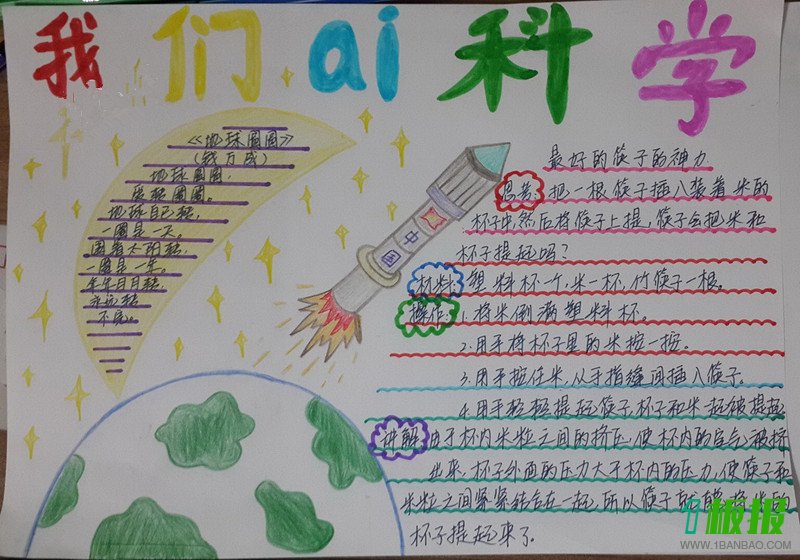 我们ai科学
《地球圆圆》
(钱万成)
地球圆圆,
地球自己转,
一圈是一天。
围着太阳转,
一圈是一年。
年年月月转,
永远转
不完。
中国
最好的筷子的神力
思考: 把一根筷子插入装着米的
杯子中,然后将筷子上提,筷子会把米和
杯子提起吗?
材料: 塑料杯一个,米一杯,竹筷子一根。
操作: 1.将米倒满塑料杯。
2.用手将杯子里的米按一按。
3.用手按住米,从手指缝间插入筷子。
4.用手轻轻提起筷子,杯子和米一起被提起
讲解: 由于杯内米粒之间的挤压,使杯内的空气被挤
出来,杯子外面的压力大于杯内的压力,使筷子和
米粒之间紧紧结合在一起,所以筷子就能将米的
杯子提起来了。
板报
WWW.1BANBAO.COM